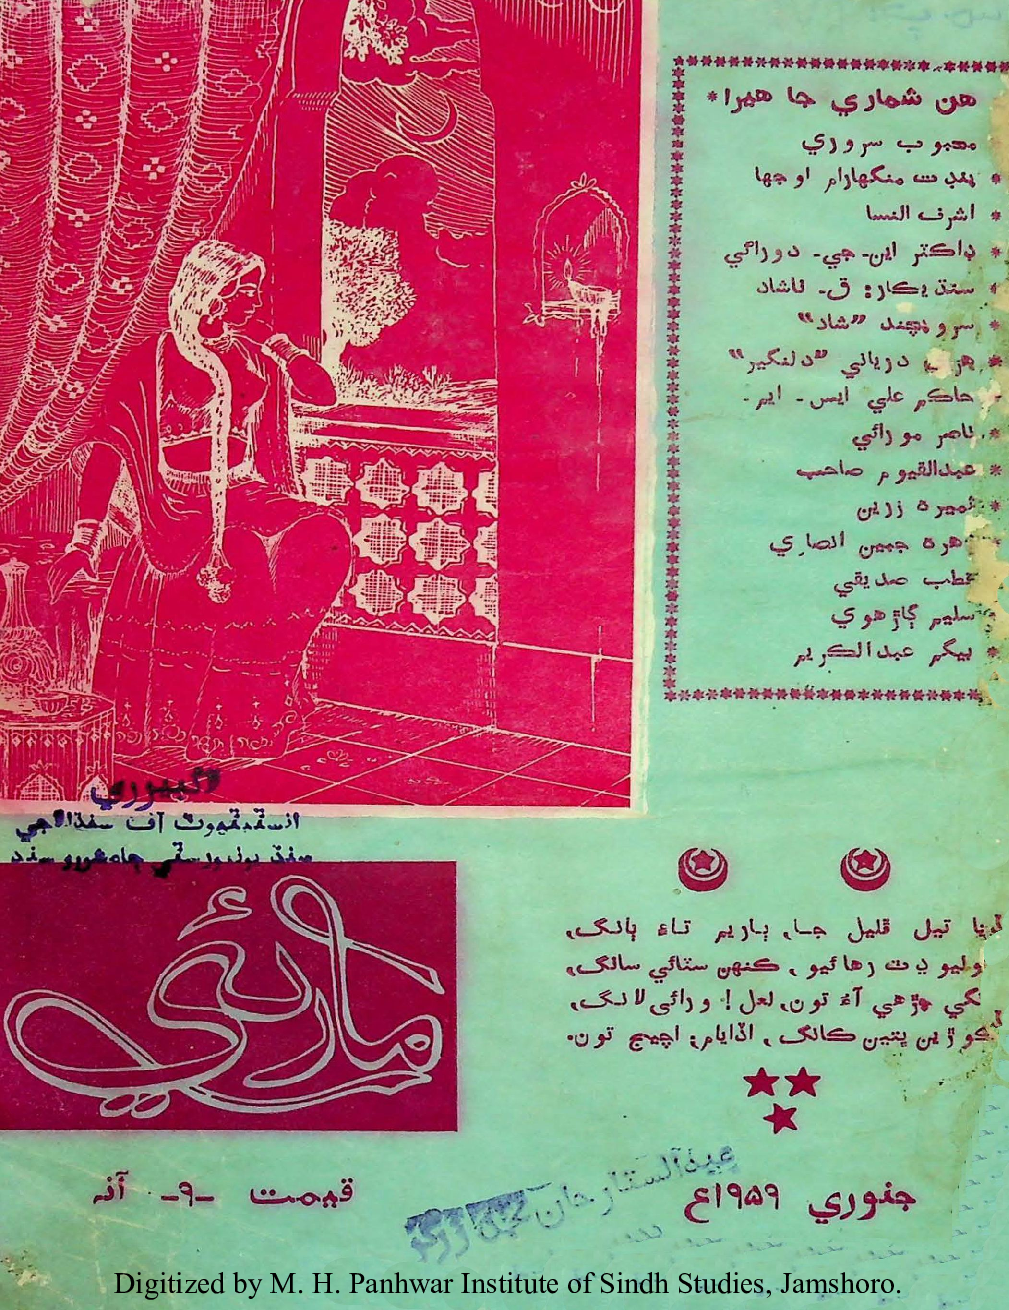 هن شماري جا هيرا*
محبوب سروري
* پنڊت منگهارام اوجها
* اشرف النسا
* ڊاڪٽر اين۔ جي۔ دوراڻي
* سنڌيڪار: ق۔ ناشاد
* سرويچند ”شاد“
* هري درياني ”دلگير“
حاڪم علي ايس۔ ايم۔
* ناصر مورائي
* عبدالقيوم صاحب
* ثميره زرين
جبين انصاري
قطب صديقي
* سليم ڳاڙهوي
* بيگم عبدالڪريم
لائبريري
انسٽيٽيوٽ آف سنڌالاجي
سنڌ يونيورسٽي ڄامشورو سنڌ
تيل قليل جا، ٻاريم تاءَ ٻانگ،
رهائيو، ڪنهن سٽائي سانگ،
چڙهي آءُ تون، لعل! ورائي لانگ،
ڪانگ، اڏايام؛ اچيج تون.
مارئي
قيمت -۹- آنہ
جنوري ۱۹۵۹ع
عبدالستار خان
Digitized by M. H. Panhwar Institute of Sindh Studies, Jamshoro.